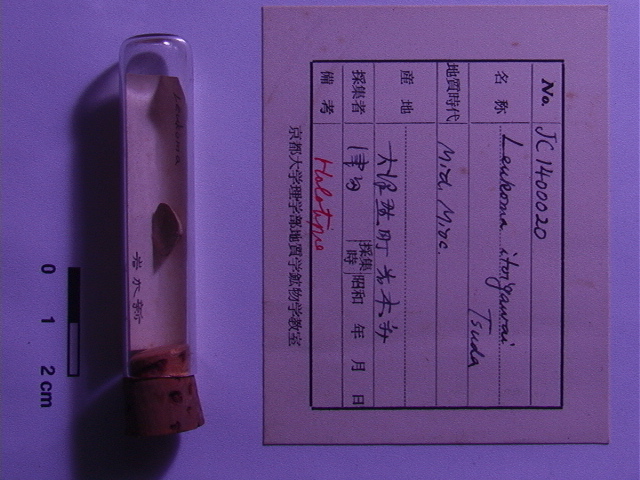 No. JC1400020
名称 Leukoma itoigawai
Tsuda
地質時代 Mid. Mioc.
産地
採集者 津田 採集時 昭和 年 月 日
備考 Holotipie
京都大学理学部地質学鉱物学教室
Leukoma
0 1 2 cm